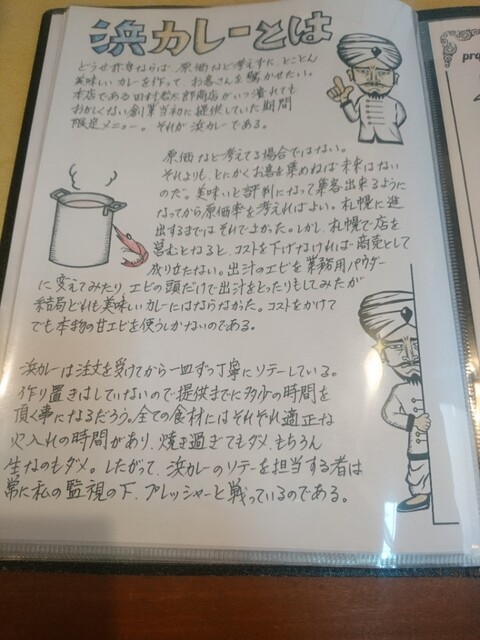 浜カレーとは
どうせ赤字ならば、原価など考えずに、とことん
美味いカレーを作って、お客さんを驚かせたい。
本店である田村岩太郎商店がいつ潰れても
おかしくない創業当初に提供していた期間
限定メニュー。それが浜カレーである。
原価など考えてる場合ではない。
それよりも、とにかくお客を集めねば未来はない
のだ。美味いと評判になって集客出来るように
なってから原価率を考えればよい。札幌に進
出するまではそれでよかった。しかし、札幌で店を
営むとなると、コストを下げなければ商売として
成り立たない。出汁のエビを業務用パウダー
に変えてみたり、エビの頭だけで出汁をとったりもしてみたが
結局どれも美味いカレーにはならなかった。コストをかけて
でも本物の甘エビを使うしかないのである。
浜カレーは注文を受けてから一皿ずつ丁寧にソテーしている。
作り置きはしていないので提供までに多少の時間を
頂く事になるだろう。全ての食材にはそれぞれ適正な
火入れの時間があり、焼き過ぎてもダメ、もちろん
生なのもダメ。したがって、浜カレーのソテーを担当する者は
常に私の監視の下、プレッシャーと戦っているのである。
pro